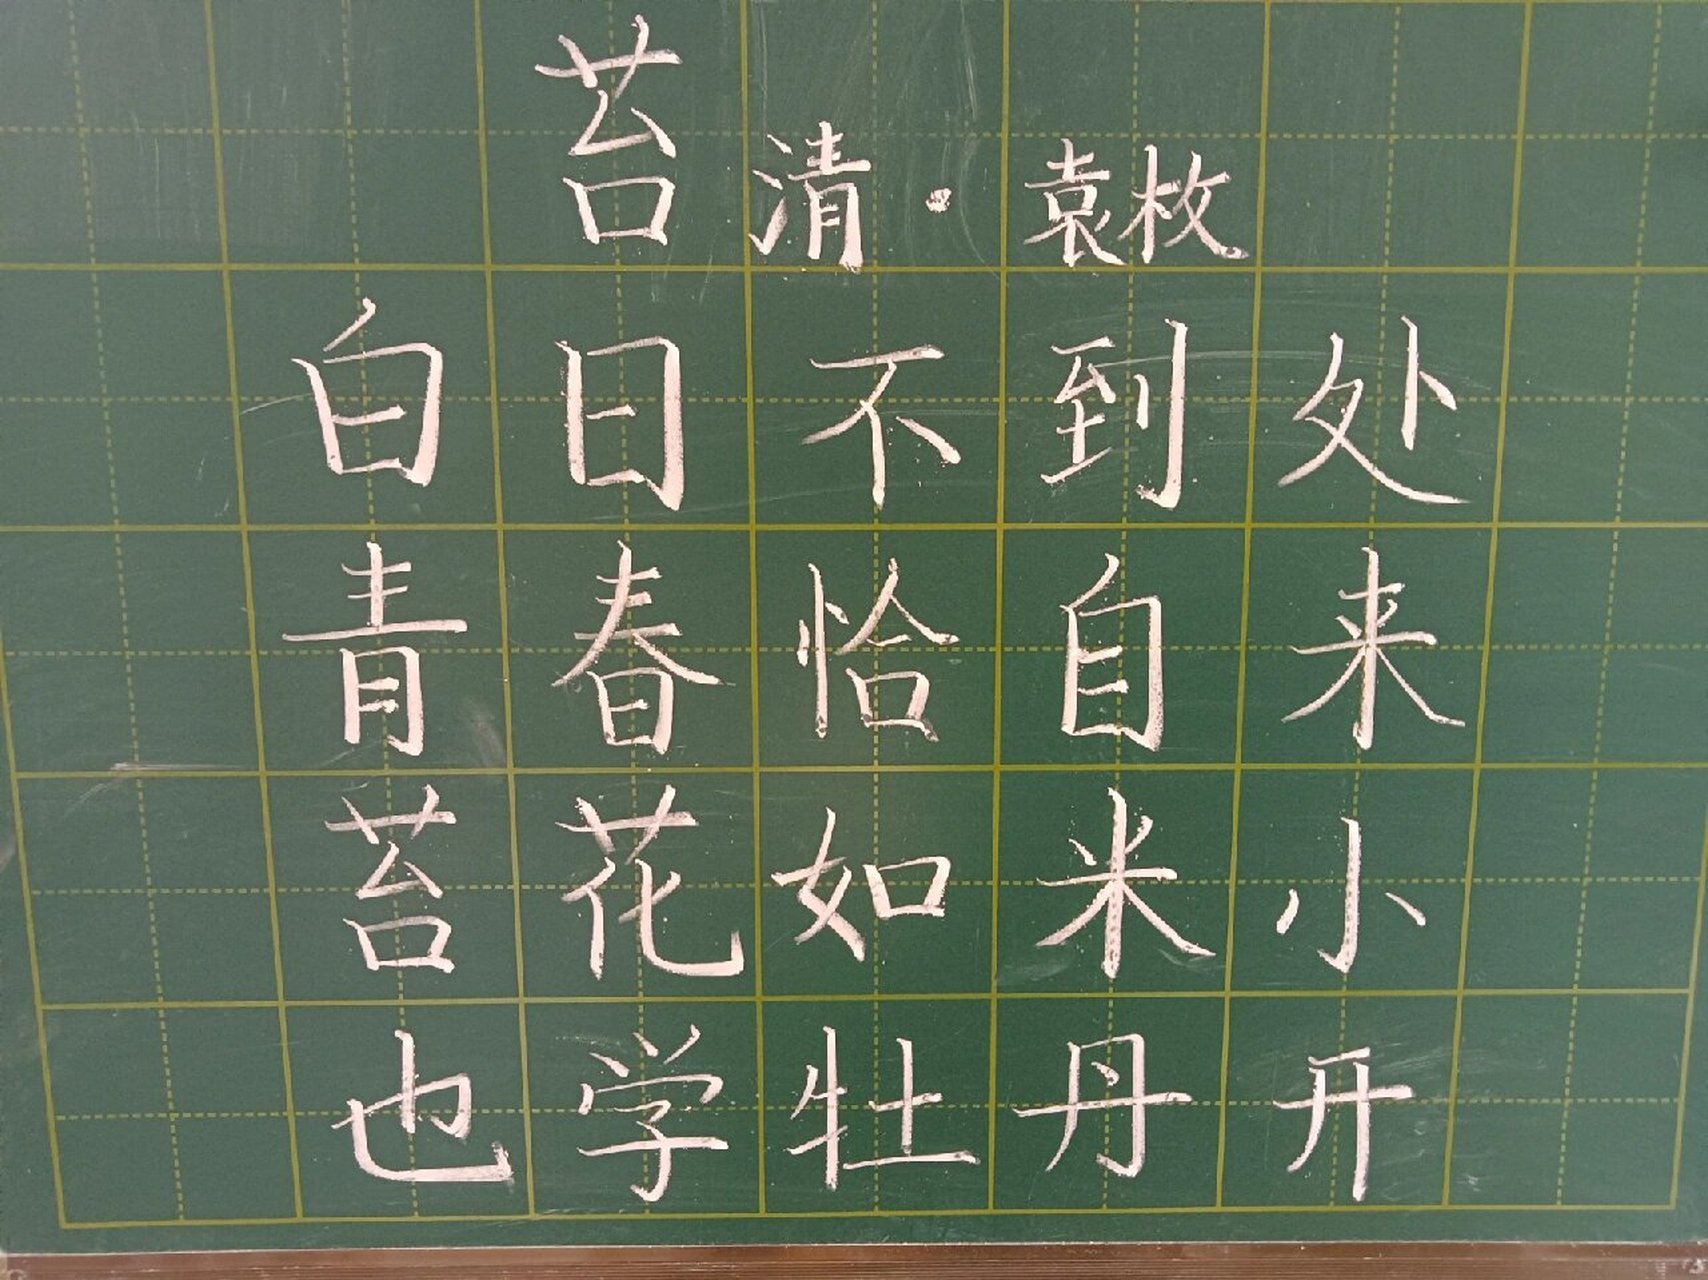 苔 清·袁枚
白日不到处
青春恰自来
苔花如米小
也学牡丹开